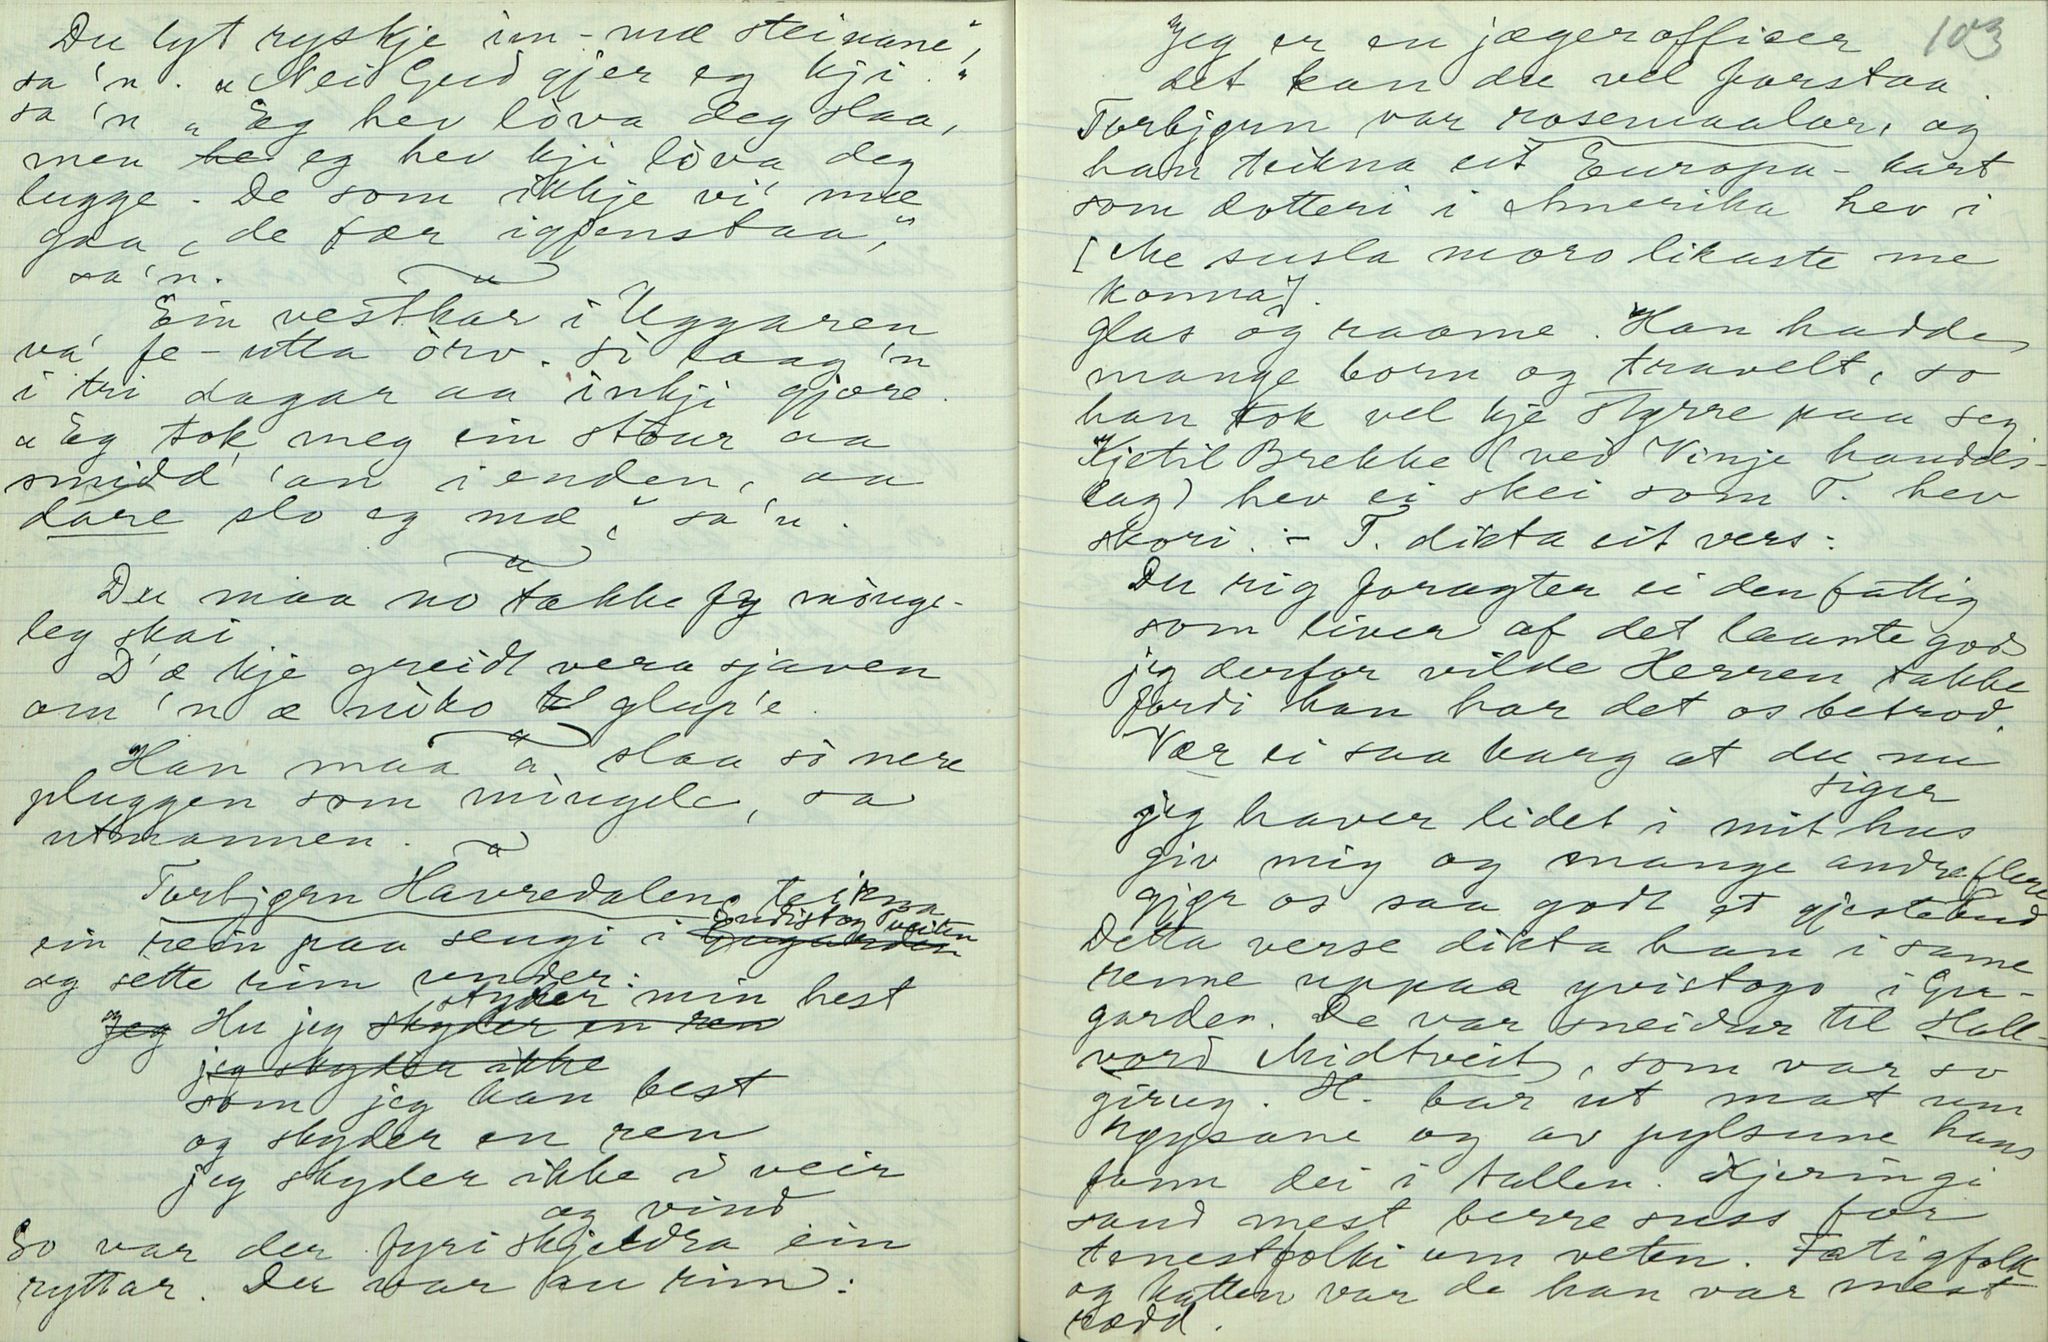 Du lyt ryskje inn-mæ steinane",
sa 'n. "Nei Gud gjer eg kji."
sa 'n "Eg hev lòva deg slaa,
men he eg hev kji lòva deg
lugge. De som ikkje vi' mæ
gaa, de fær igjenstaa,"
sa 'n.
Ein vestkar i Uggaren
va' fe-utta òrv. Sò laag 'n
i tri dagar aa inkji gjære.
"Eg tok meg ein staur aa
smidd' 'an i enden, aa
dære slo eg mæ," sa 'n.
Du maa no takke fy mònge-
leg skai
D'æ kje greidt vera sjaven
om 'n æ nòko til glup'e.
Han maa å slaa sò nere
pluggen som mòngele, sa
utmannen.
Torbjørn Håvredalen teikna
ein rein paa sengi i Nordistog Tveiten
og sette rim under:
og Jeg Hu jeg skyder en ren styder min hest
jeg skyder ikke
som jeg kan best
og skyder en ren
jeg skyder ikke i veir
og vind
So var der fyri skjeldra ein
ryttar. Der var au rim:
103
Jeg er en jægeroffiser
det kan du vel forstaa.
Torbjørn var rosemaalar, og
han teikna eit Europa-kart
som dotteri i Amerika hev i
[Me susla moro likaste me
konna].
glas og raame. Han hadde
mange born og travelt, so
han tok vel kje styrre paa seg
Kjetil Brekke (ved Vinje handels-
lag) hev ei skei som T. hev
skori. - T. dikta eit vers:
Du rig foragter ei den fattig
som liver af det laante god
jeg derfor vilde Herren takke
fordi han har det os betrod.
Vær ei saa karg at du nu
siger
jeg haver lidet i mit hus
giv mig og mange andre flere
gjør os saa godt et gjestebud
Detta verse dikta han i same
renne uppaa øvistogo i Gru-
garden. De var sneidar til Hall-
vord Midtveit, som var so
girug. H. bar ut mat um
og av pylsune hans
fann dei i tallen. Kjeringi
saud mest berre suss for
tenestfolki um veten. Fatigfolk
og katten var de han var mest
rædd.